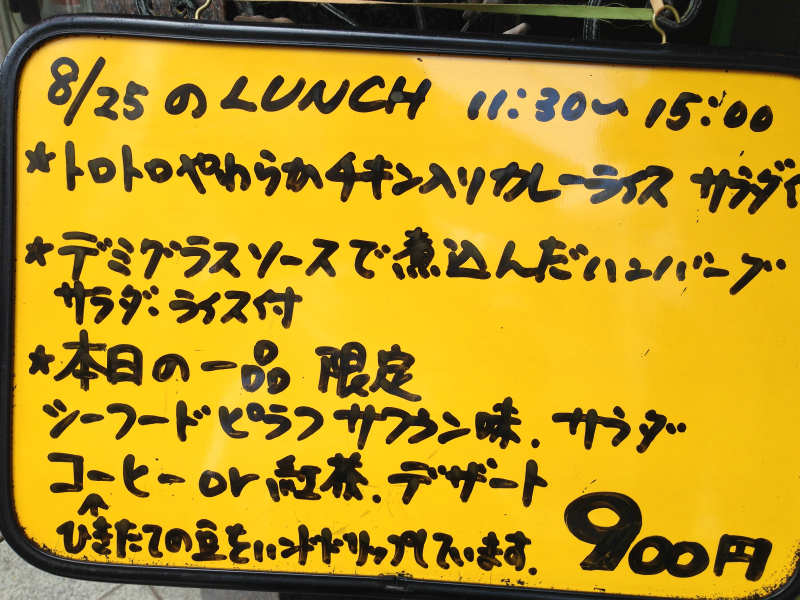 8/25のLUNCH 11:30〜15:00
★トロトロやわらかチキン入りカレーライス サラダイ
★デミグラスソースで煮込んだハンバーグ
サラダ・ライス付
★本日の一品 限定
シーフードピラフ サフラン味. サラダ
コーヒー or 紅茶. デザート
ひきたての豆をハンドドリップしています. 900円